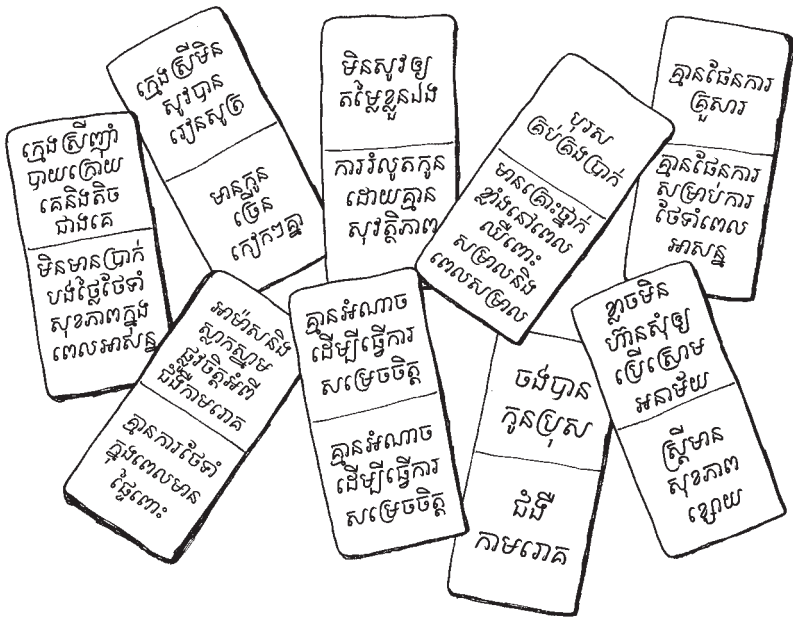 ក្មេងស្រីញ៉ាំ
បាយក្រោយ
គេនិងតិច
ជាងគេ
មិនមានប្រាក់
បង់ថ្លៃថែទាំ
សុខភាពក្នុង
ពេលអាសន្ន
ក្មេងស្រីមិន
សូវបាន
រៀនសូត្រ
មានកូន
ច្រើន
កៀកៗគ្នា
មិនសូវឲ្យ
តម្លៃខ្លួនឯង
ការរំលូតកូន
ដោយគ្មាន
សុវត្ថិភាព
បុរស
គ្រប់គ្រងប្រាក់
មានគ្រោះថ្នាក់
ខ្លាំងនៅពេល
ឈឺពោះ
សម្រាលនិង
ពេលសម្រាល
គ្មានផែនការ
គ្រួសារ
គ្មានផែនការ
សម្រាប់ការ
ថែទាំពេល
អាសន្ន
អាម៉ាសនិង
ស្លាកស្នាម
ផ្លូវចិត្តអំពី
ជំងឺកាមរោគ
គ្មានការថែទាំ
ក្នុងពេលមាន
ផ្ទៃពោះ
គ្មានអំណាច
ដើម្បីធ្វើការ
សម្រេចចិត្ត
គ្មានអំណាច
ដើម្បីធ្វើការ
សម្រេចចិត្ត
ចង់បាន
កូនប្រុស
ជំងឺ
កាមរោគ
ខ្លាចមិន
ហ៊ានសុំឲ្យ
ប្រើស្រោម
អនាម័យ
ស្ត្រីមាន
សុខភាព
ខ្សោយ